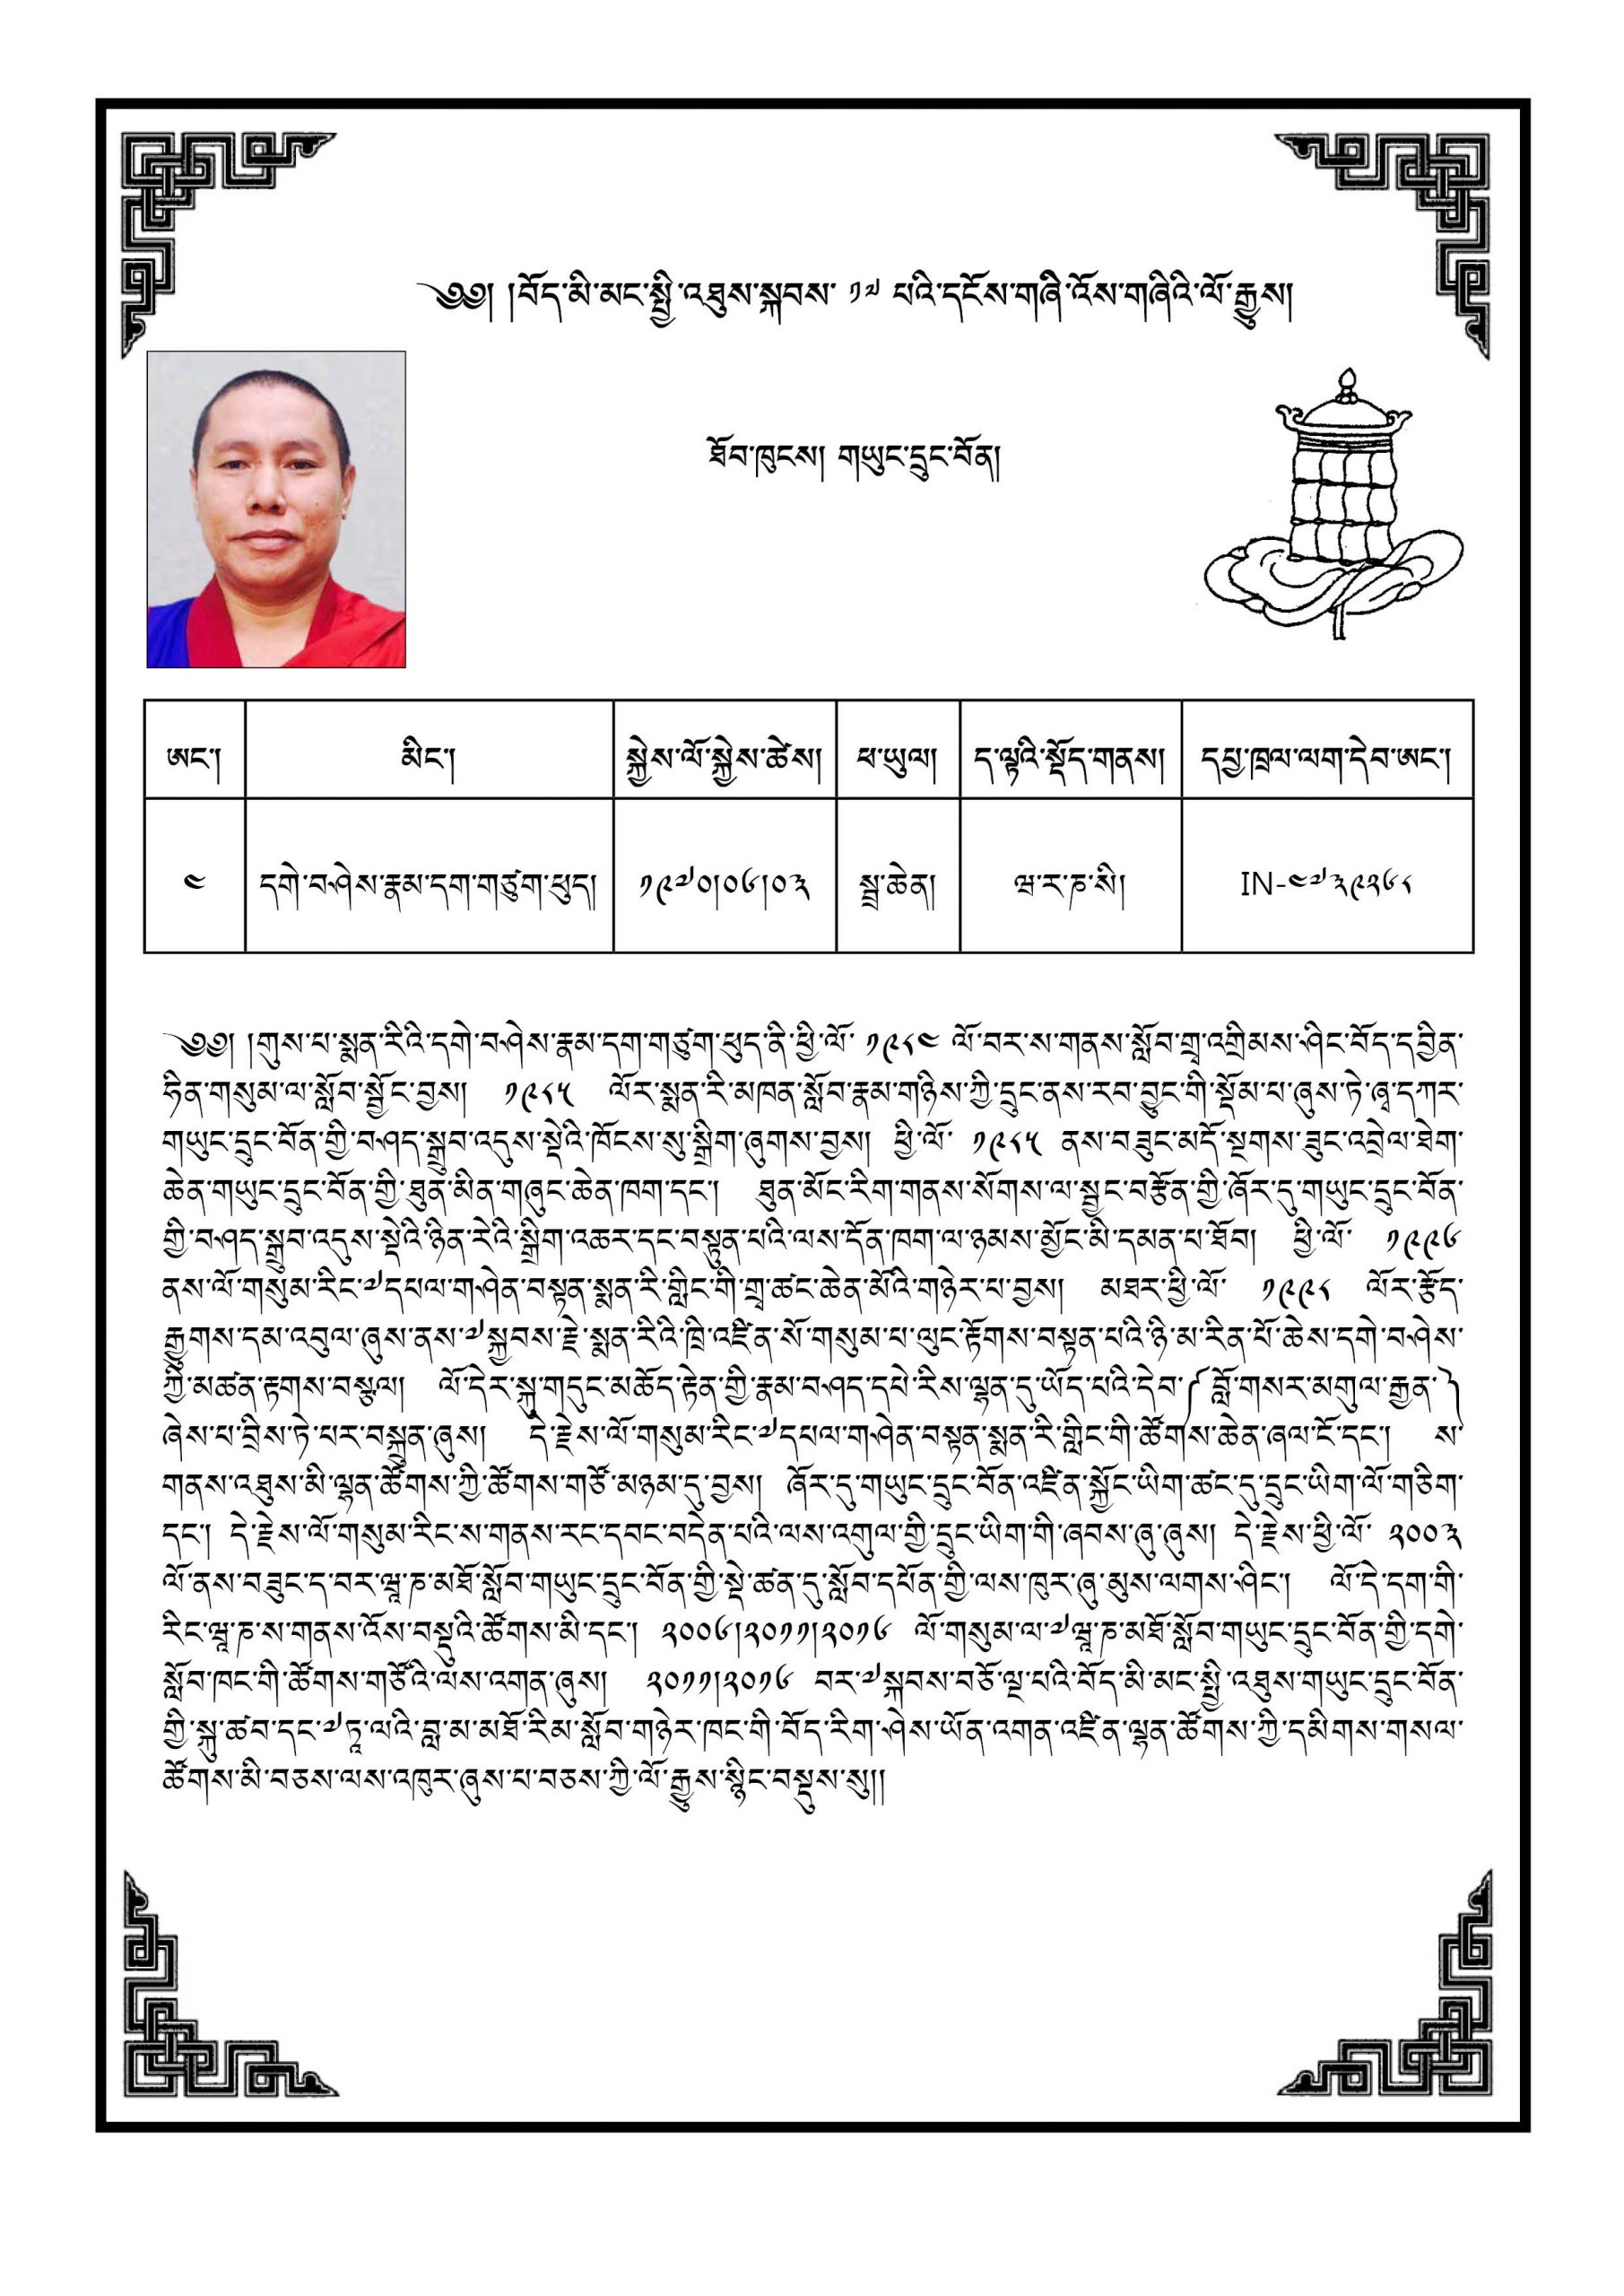 ༄༅། །བོད་མི་མང་སྤྱི་འཐུས་སྐབས་ ༡༧ པའི་དངོས་གཞིེ་འོས་གཞིའི་ལོ་རྒྱུས།
ཐོབ་ཁུངས། གཡུང་དྲུང་བོན།
ཨང་། མིང་། སྐྱེས་ལོ་སྐྱེས་ཚེས། ཕ་ཡུལ། ད་ལྟའི་སྡོད་གནས། དཔྱ་ཁྲལ་ལག་དེབ་ཨང་།
༤ དགེ་བཤེས་རྣམ་དག་གཙུག་ཕུད། ༡༩༧༠།༠༦།༠༣ སྦྲ་ཆེན། ཝ་ར་ཎ་སི། IN-༤༧༣༩༢༦༨
༄༅། །གུས་པ་སྨན་རིའི་དགེ་བཤེས་རྣམ་དག་གཙུག་ཕུད་ནི་ཕྱི་ལོ་ ༡༩༨༤ ལོ་བར་ས་གནས་སློབ་གྲྭ་འགྲིམས་ཤིང་བོད་དབྱིན་
ཧིན་གསུམ་ལ་སློབ་སྦྱོང་བྱས། ༡༩༨༥ ལོར་སྨན་རི་མཁན་སློབ་རྣམ་གཉིས་ཀྱི་དྲུང་ནས་རབ་བྱུང་གི་སྡོམ་པ་ཞུས་ཏེ་ཞྭ་དཀར་
གཡུང་དྲུང་བོན་གྱི་བཤད་སྒྲུབ་འདུས་སྡེའི་ཁོངས་སུ་སྒྲིག་ཞུགས་བྱས། ཕྱི་ལོ་ ༡༩༨༥ ནས་བཟུང་མདོ་སྔགས་ཟུང་འབྲེལ་ཐེག་
ཆེན་གཡུང་དྲུང་བོན་གྱི་ཐུན་མིན་གཞུང་ཆེན་ཁག་དང་། ཐུན་མོང་རིག་གནས་སོགས་ལ་སྦྱང་བརྩོན་གྱི་ཞོར་དུ་གཡུང་དྲུང་བོན་
གྱི་བཤད་སྒྲུབ་འདུས་སྡེའི་ཉིན་རེའི་སྒྲིག་འཆར་དང་བསྟུན་པའི་ལས་དོན་ཁག་ལ་ཉམས་མྱོང་མི་དམན་པ་ཐོབ། ཕྱི་ལོ་ ༡༩༩༦
ནས་ལོ་གསུམ་རིང་༧དཔལ་གཤེན་བསྟན་སྨན་རི་གླིང་གི་གྲྭ་ཚང་ཆེན་མོའི་གཉེར་པ་བྱས། མཐར་ཕྱི་ལོ་ ༡༩༩༨ ལོར་རྩོད་
རྒྱུགས་དམ་འབུལ་ཞུས་ནས་༧སྐྱབས་རྗེ་སྨན་རིའི་ཁྲི་འཛིན་སོ་གསུམ་པ་ལུང་རྟོགས་བསྟན་པའི་ཉི་མ་རིན་པོ་ཆེས་དགེ་བཤེས་
ཀྱི་མཚན་རྟགས་བསྩལ། ལོ་དེར་སྐུ་གདུང་མཆོད་རྟེན་གྱི་རྣམ་བཤད་དཔེ་རིས་ལྷན་དུ་ཡོད་པའི་དེབ་༼བློ་གསར་མགུལ་རྒྱན་༽
ཞེས་པ་བྲིས་ཏེ་པར་བསྐྲུན་ཞུས། དེ་རྗེས་ལོ་གསུམ་རིང་༧དཔལ་གཤེན་བསྟན་སྨན་རི་གླིང་གི་ཚོགས་ཆེན་ཞལ་ངོ་དང་། ས་
གནས་འཐུས་མི་ལྷན་ཚོགས་ཀྱི་ཚོགས་གཙོ་མཉམ་དུ་བྱས། ཞོར་དུ་གཡུང་དྲུང་བོན་འཛིན་སྐྱོང་ཡིག་ཚང་དུ་དྲུང་ཡིག་ལོ་གཅིག་
དང་། དེ་རྗེས་ལོ་གསུམ་རིང་ས་གནས་རང་དབང་བདེན་པའི་ལས་འགུལ་གྱི་དྲུང་ཡིག་གི་ཞབས་ཞུ་ཞུས། དེ་རྗེས་ཕྱི་ལོ་ ༢༠༠༣
ལོ་ནས་བཟུང་ད་བར་ཝཱ་ཎ་མཐོ་སློབ་གཡུང་དྲུང་བོན་གྱི་སྡེ་ཚན་དུ་སློབ་དཔོན་གྱི་ལས་ཁུར་ཞུ་མུས་ལགས་ཤིང་། ལོ་དེ་དག་གི་
རིང་ཝཱ་ཎ་ས་གནས་འོས་བསྡུའི་ཚོགས་མི་དང་། ༢༠༠༦།༢༠༡༡།༢༠༡༦ ལོ་གསུམ་ལ་༧ཝཱ་ཎ་མཐོ་སློབ་གཡུང་དྲུང་བོན་གྱི་དགེ་
སློབ་ཁང་གི་ཚོགས་གཙོའི་ལས་འགན་ཞུས། ༢༠༡༡།༢༠༡༦ བར་༧སྐབས་བཅོ་ལྔ་པའི་བོད་མི་མང་སྤྱི་འཐུས་གཡུང་དྲུང་བོན་
གྱི་སྐུ་ཚབ་དང་༧ཏཱ་ལའི་བླ་མ་མཐོ་རིམ་སློབ་གཉེར་ཁང་གི་བོད་རིག་ཤེས་ཡོན་འགན་འཛིན་ལྷན་ཚོགས་ཀྱི་དམིགས་གསལ་
ཚོགས་མི་བཅས་ལས་འཁུར་ཞུས་པ་བཅས་ཀྱི་ལོ་རྒྱུས་སྙིང་བསྡུས་སུ།།